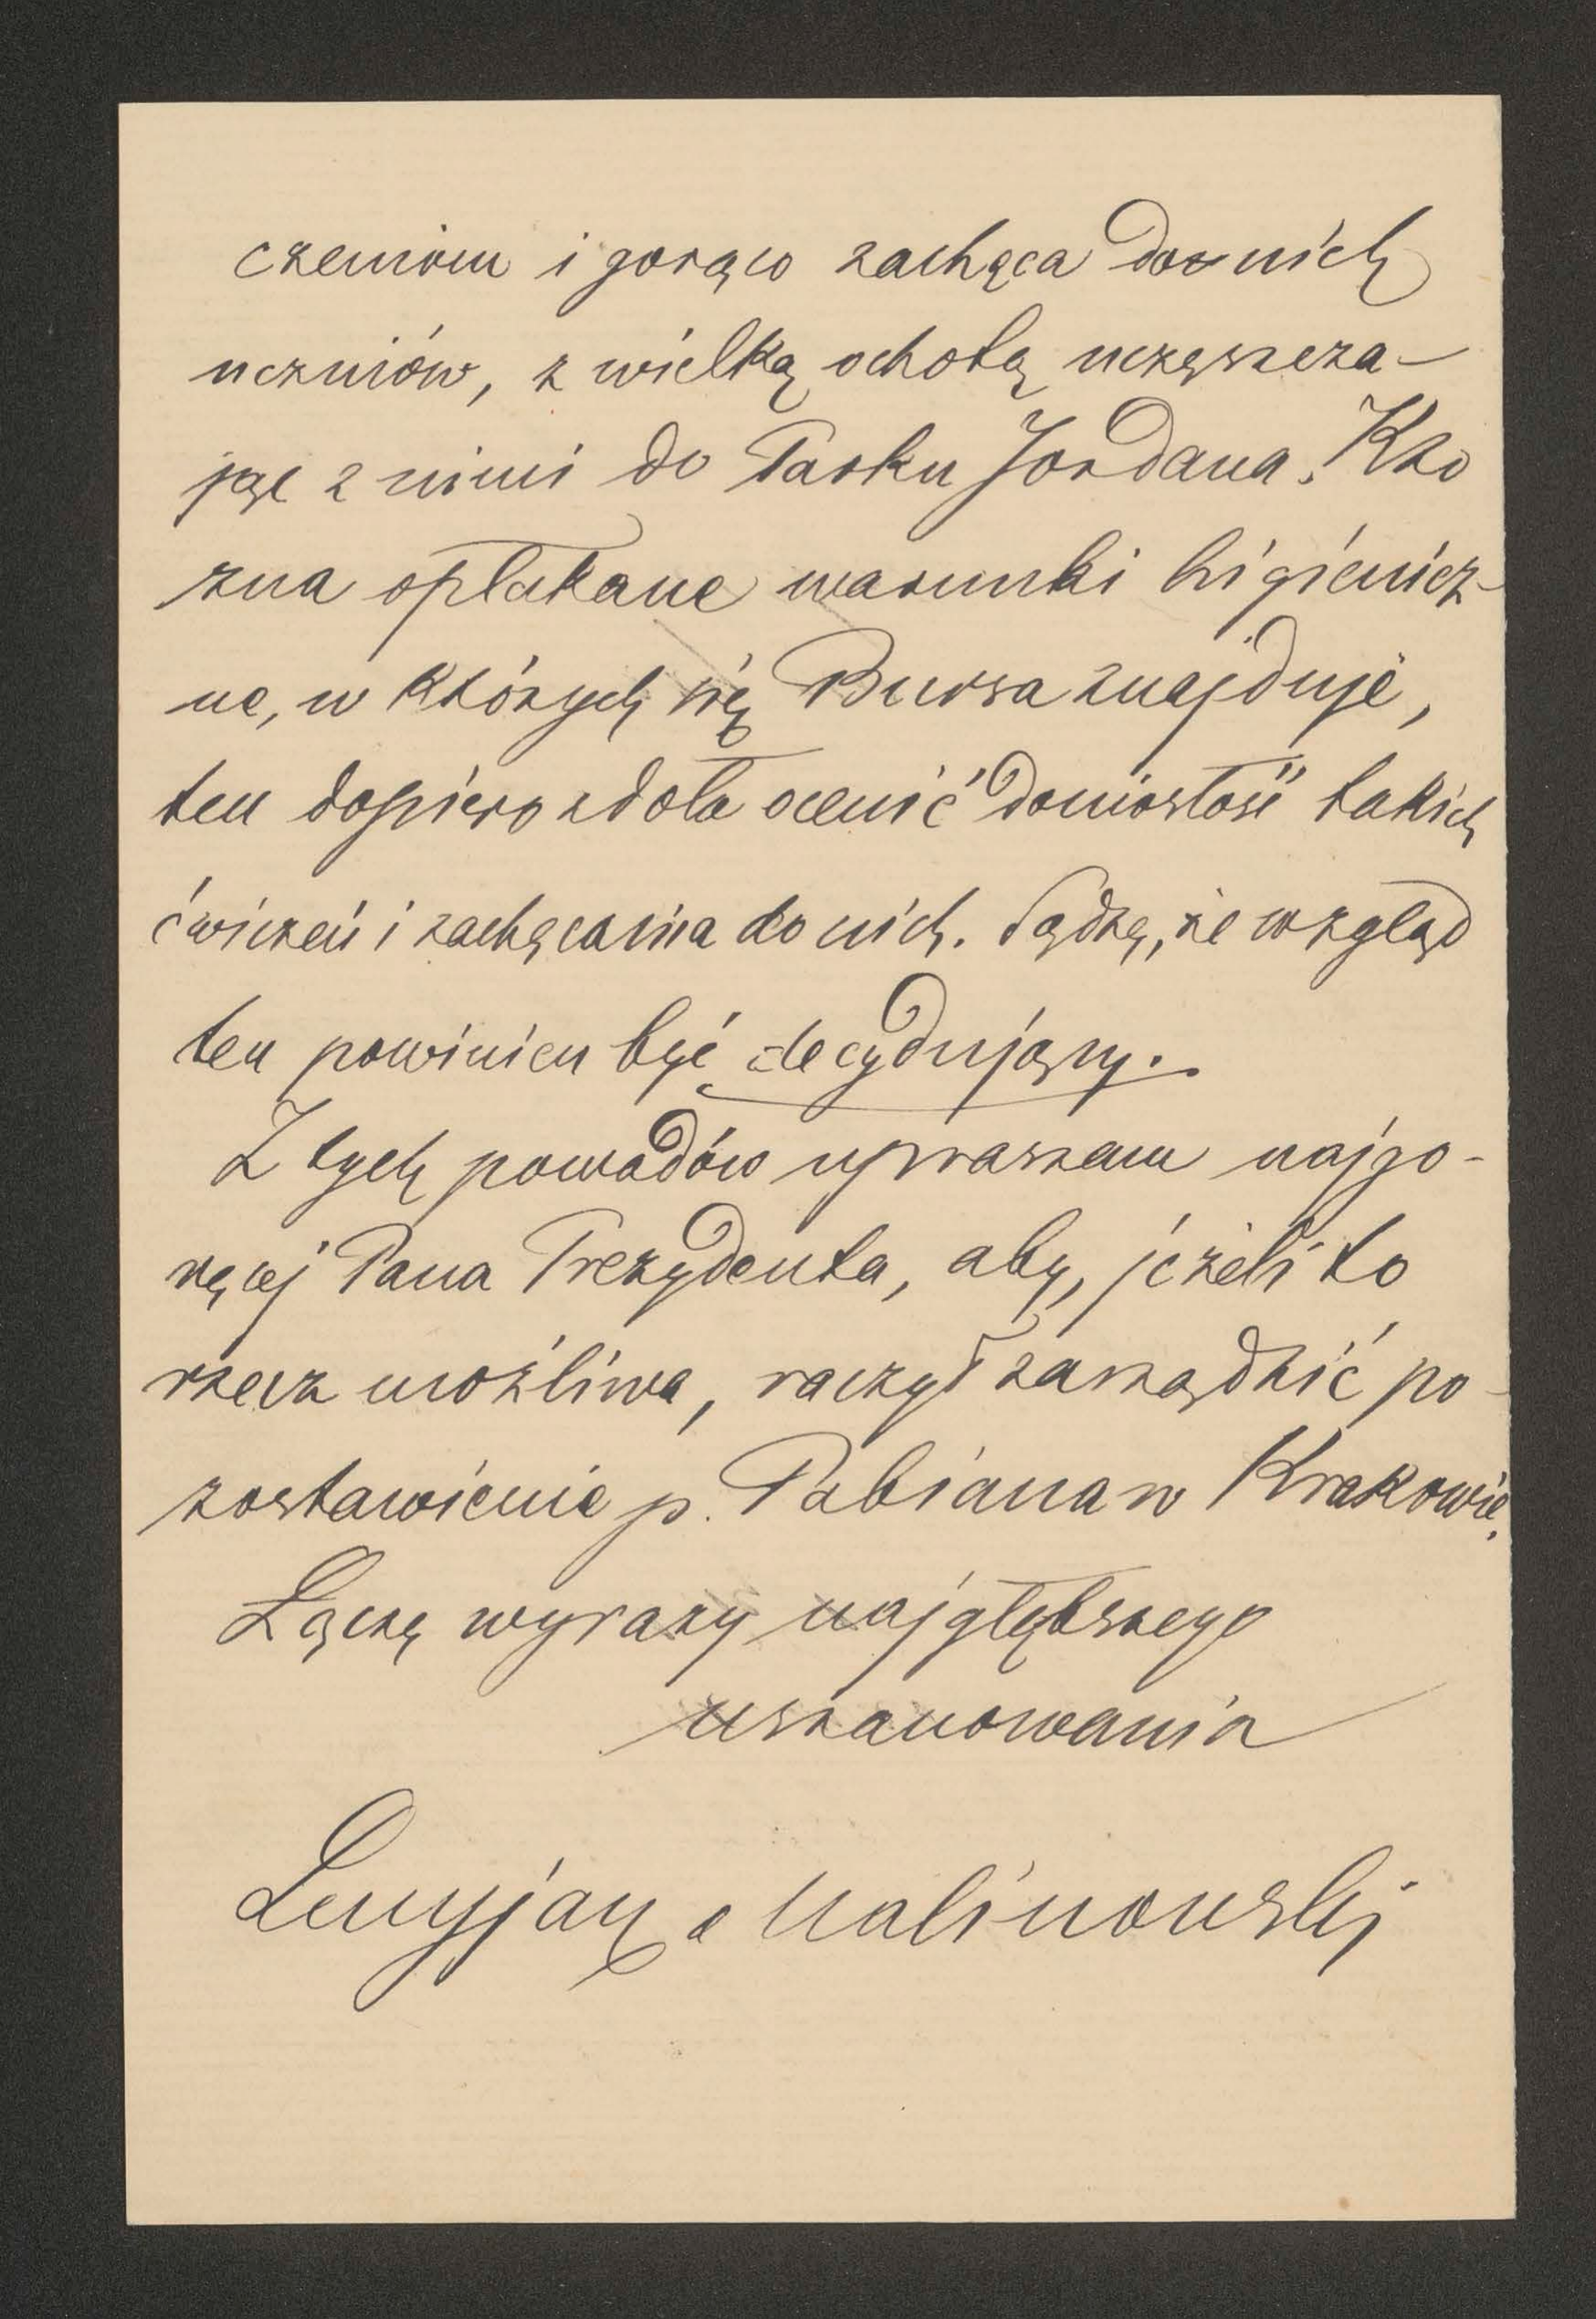 czeniom i gorąco zachęca do nich
uczniów, z wielką ochotą uczęszcza-
jąc z nimi do Parku Jordana. Kto
zna opłakane warunki higienicz-
ne, w których się Bursa znajduje,
ten dopiero zdoła ocenić doniosłość takich
ćwiczeń i zachęcania do nich. Sądzę, że wzgląd
ten powinien być decydujący.
Z tych powodów upraszam najgo-
ręcej Pana Prezydenta, aby, jeżeli to
rzecz możliwa, raczył zarządzić po-
zostawienie p. Pabiana w Krakowie.
Łączę wyrazy najgłębszego
uszanowania
Lucyjan Malinowski